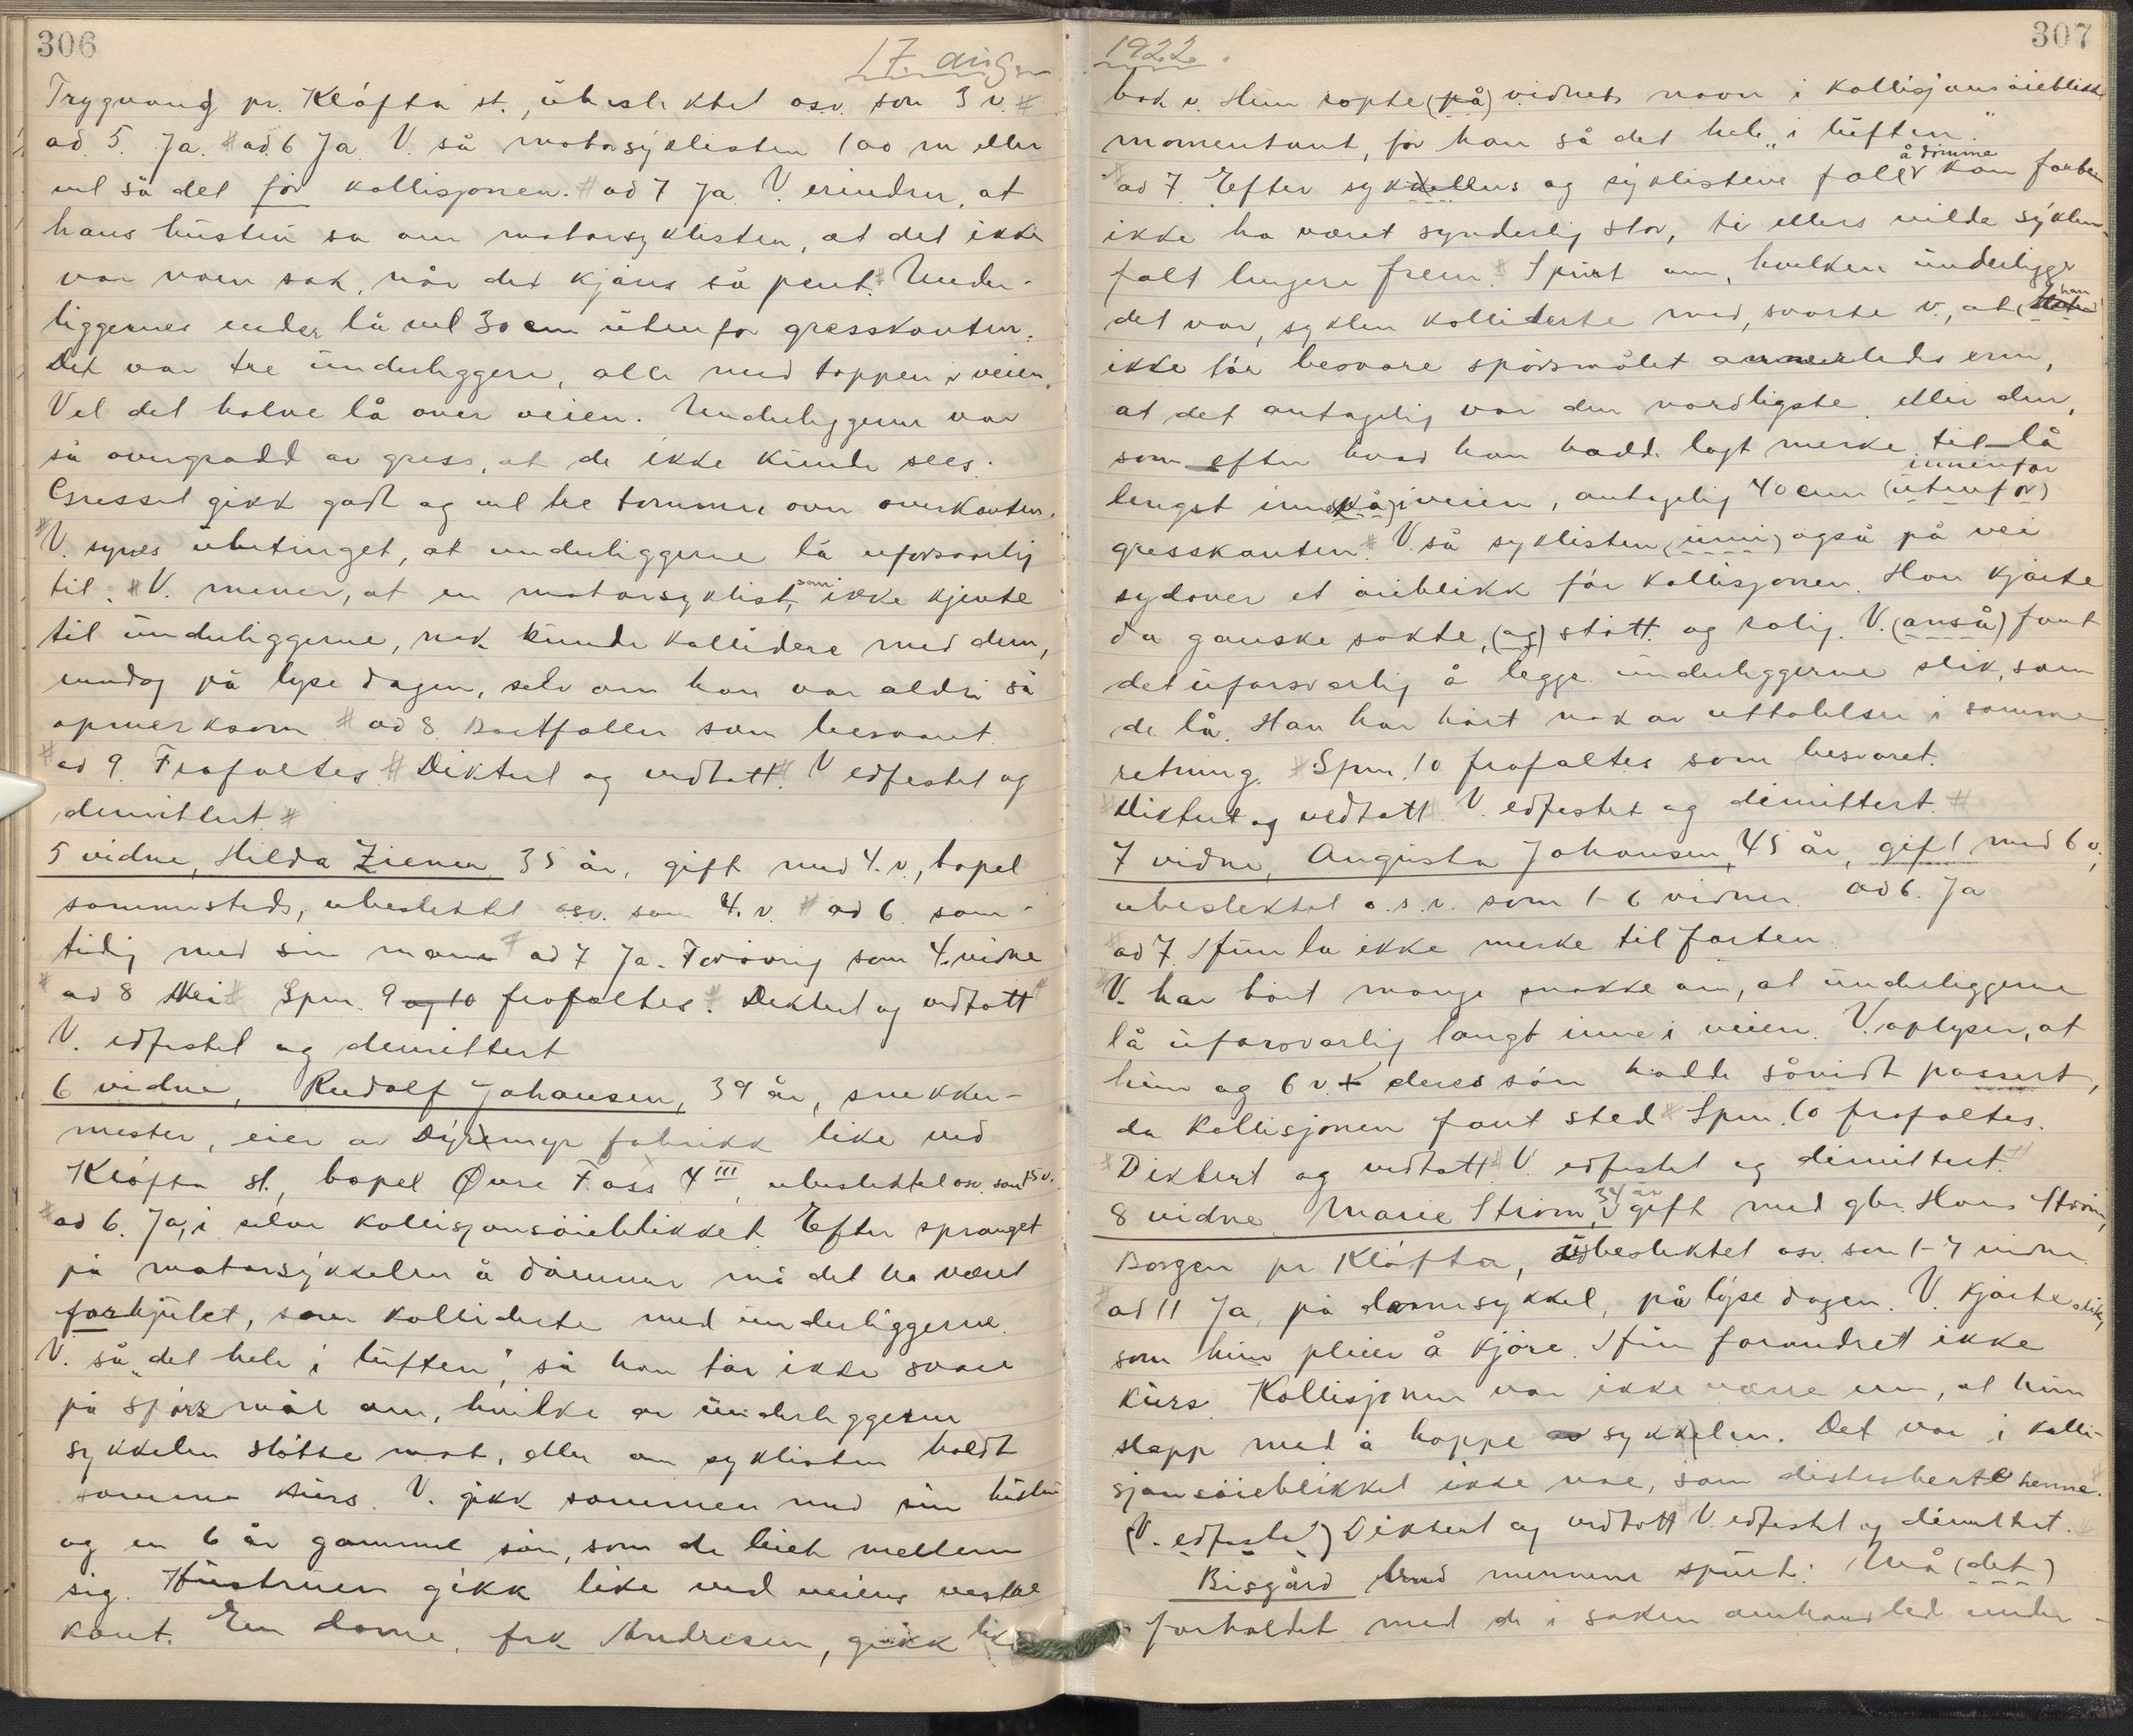 306
17. aug.
Trygvang pr. Kløfta st., ubeslektet osv. som 3 v. #
ad 5. Ja. # ad 6 Ja V. så motorsyklisten 100 m eller
vel så det før kollisjonen. # ad 7 Ja V. erindrer, at
hans hustru sa om motorsyklisten, at det ikke
var noen sak, når det kjøres så pent. # Under-
liggernes ender lå vel 30 cm utenfor gresskanten.
Det var tre underliggere, alle med toppen i veien.
Vel det halve lå over veien. Underliggerne var
så overgrodd av gress, at de ikke kunde sees.
Gresset gikk godt og vel tre tommer over overkanten.
# V. synes ubetinget, at underliggerne lå uforsvarlig
til. # V. mener, at en motorsyklist, som ikke kjente
til underliggerne, nok kunde kollidere med dem,
enndog på lyse dagen, selv om han var aldri så
opmerksom # ad 8. Bortfaller som besvart
# ad 9. Frafaltes # Diktert og vedtatt. # V edfestet og
demittert #
5 vidne, Hilda Ziener 35 år, gift med 4. v., bopel
sammesteds, ubeslektet osv. som 4. v. # ad 6. sam-
tidig med sin mann # ad 7 Ja. Forøvrig som 4. vidne
# ad 8 Nei # Spm. 9 og 10 frafaltes. # Diktert og vedtatt #
V. edfestet og demittert
6 vidne, Rudolf Johansen, 39 år, snekker-
mester, eier av Dyremyr fabrikk like ved
Kløfta st., bopel Øvre Foss 4 III, ubeslektet osv. som 1-5 v.
# ad 6. Ja, i selve kollisjonsøieblikket. Efter spranget
på motorsykkelen å dømme må det ha været
forhjulet, som kolliderte med underliggerne.
V. så „det hele i luften", så han tør ikke svare
på spørsmål om, hvilke av underliggerne
sykkelen støtte mot, eller om syklisten holdt
samme kurs. V. gikk sammen med sin hustru
og en 6 år gammel søn, som de leiet mellem
sig. Hustruen gikk like ved veiens vestre
kant. En dame, frk Andresen, gikk like
1922.
307
bak v. Hun ropte (på) vidnets navn i kollisjonsøieblikket
momentant, før han så det hele „i luften."
# ad 7. Efter sykkelens og syklistens fall å dømme kan farten
ikke ha været synderlig stor, ti ellers vilde syklen
falt lengere frem. # Spurt om, hvilken underligger
det var, syklen kolliderte med, svarte v., at han
ikke tør besvare spørsmålet annerledes enn,
at det antagelig var den nordligste, eller den,
som efter hvad han hadde lagt merke til lå
lengst inn (på) i veien, antagelig 40 cm (utenfor) innenfor
gresskanten. # V. så syklisten (inni) også på vei
sydover et øieblikk før kollisjonen. Han kjørte
da ganske sakte, (og) støtt og rolig. V. (anså) fant
det uforsvarlig å legge underliggerne slik, som
de lå. Han har hørt nok av uttalelser i samme
retning. # Spm. 10 frafaltes som besvaret.
# Diktert og vedtatt. V. edfestet og dimittert. #
7 vidne, Augusta Johansen, 45 år, gift med 6 v.,
ubeslektet o.s.v. som 1-6 vidner. ad 6. Ja
# ad 7. Hun la ikke merke til farten.
# V. har hørt mange snakke om, at underliggerne
lå uforsvarlig langt inne i veien. V. oplyser, at
hun og 6 v. + deres søn hadde såvidt passert,
da kollisjonen fant sted # Spm. 10 frafaltes.
# Diktert og vedtatt # V. edfestet og dimittert. #
8 vidne Marie Strøm, 34 år gift med gbr. Hans Strøm,
Borgen pr Kløfta, ubeslektet osv. som 1-7 vidne
# ad 11 Ja, på damesykkel, på lyse dagen. V. kjørte slik,
som hun pleier å kjøre. Hun forandret ikke
kurs. Kollisjonen var ikke værre enn, at hun
slapp med å hoppe av sykkelen. Det var i kolli-
sjonsøieblikket ikke noe, som distraherte henne. #
(V. edfestet) Diktert og vedtatt # V. edfestet og dimittert. #
Bisgård mennene spurt: Må (det)
forholdet med de i saken omhandlede under-